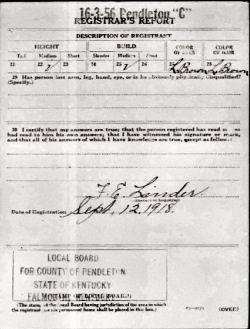 16-3-56 Pendleton "C"
REGISTRAR'S REPORT
DESCRIPTION OF REGISTRANT
HEIGHT BUILD COLOR OF EYES COLOR OF HAIR
Tall Medium Short Slender Medium Stout
21 22 23 24 25 26 27 28
L Brown L Brown
29 Has person lost arm, leg, hand, eye, or is he obviously physically disqualified?
(Specify.)
30 I certify that my answers are true; that the person registered has read or has
had read to him his own answers; that I have witnessed his signature or mark,
and that all of his answers of which I have knowledge are true, except as follows:
Linder
Date of Registration Sept. 12, 1918.
LOCAL BOARD
FOR COUNTY OF PENDLETON
STATE OF KENTUCKY
FALMOUTH
(The stamp of the Local Board having jurisdiction of the area in which
the registrant has his permanent home shall be placed in this box.)
(OVER)